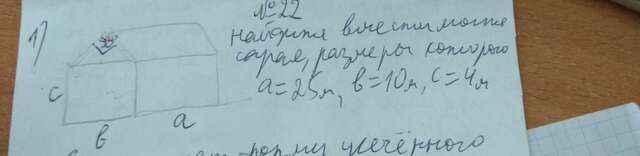 №22
1) найдите вместимость
сарая, размеры которого
a=25м, b=10м, c=4м
c
b
a
форму усечённого